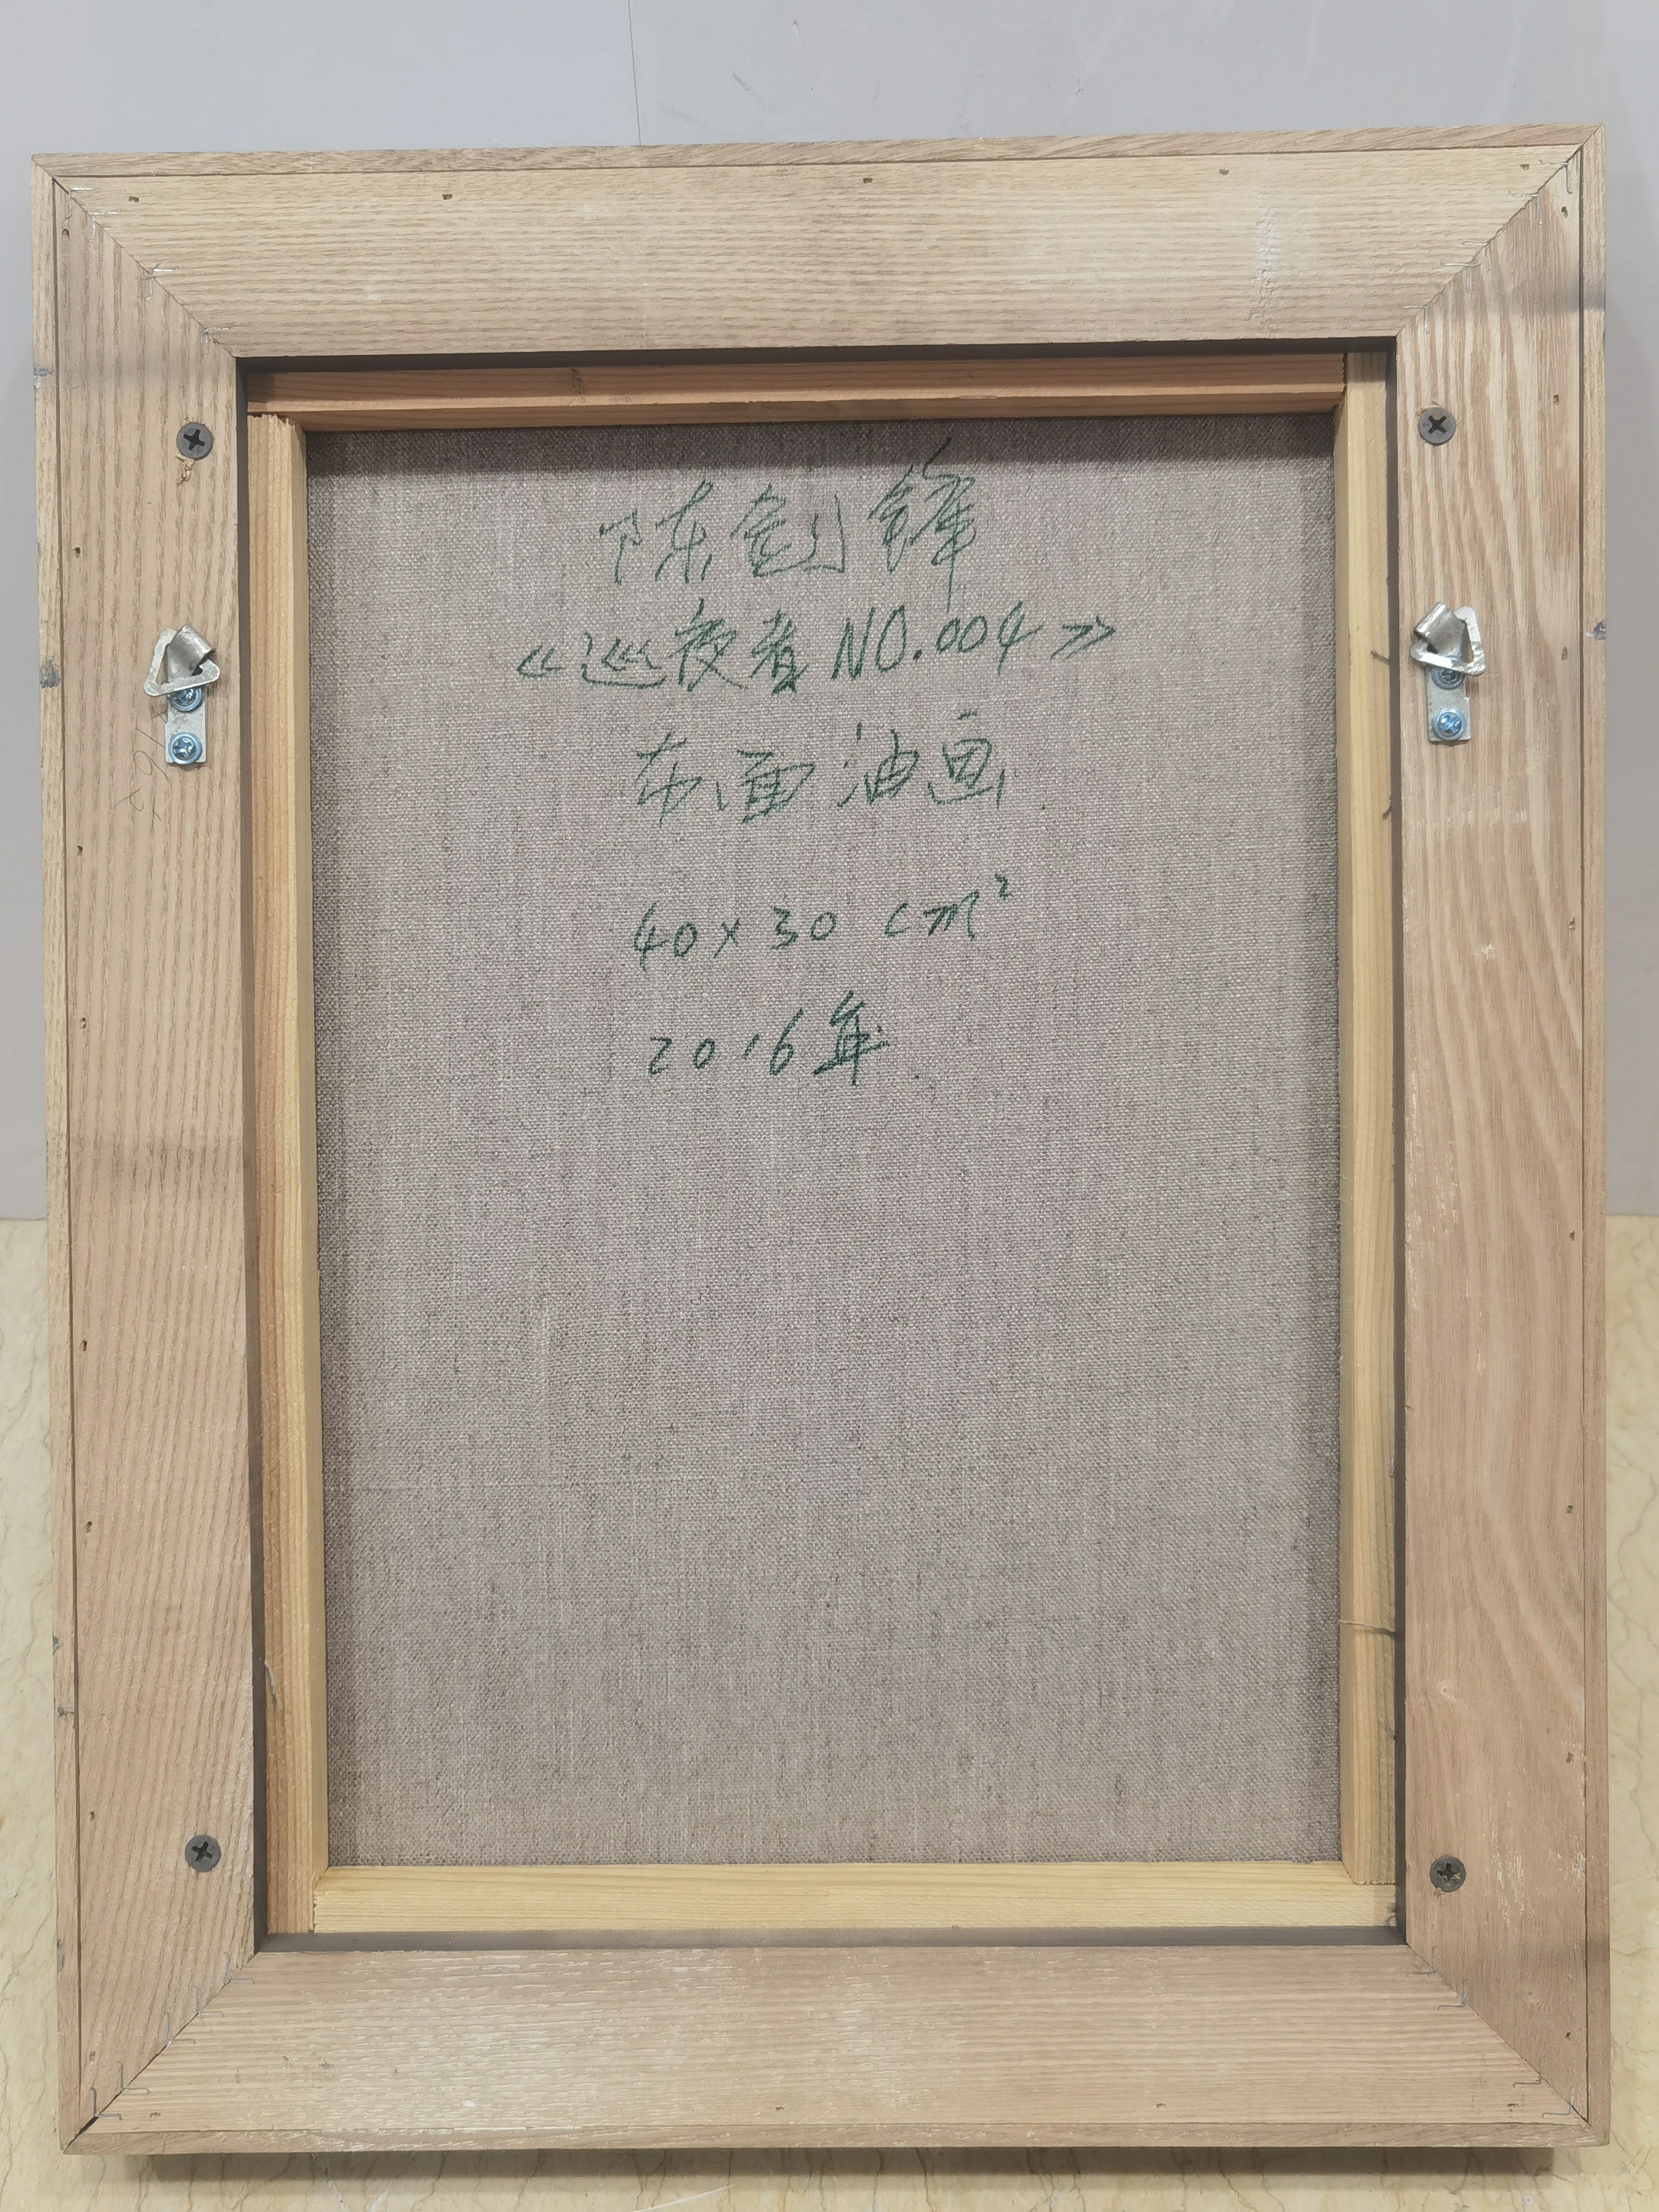 陈剑锋
《巡夜者 NO.004》
布面油画
40x30 cm²
2016年